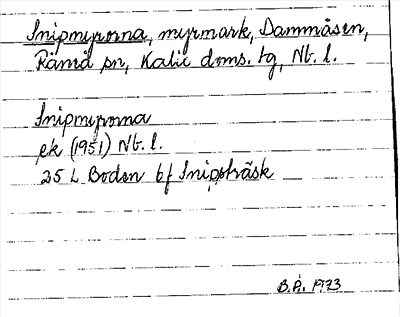 Snipmyrorna, myrmark, Dammåsen,
Råneå sn, Kalix doms. tg, Nb. l.
Snipmyrorna
ek (1951) Nb. l.
25 L Boden bf Snipträsk
B.P. 1973